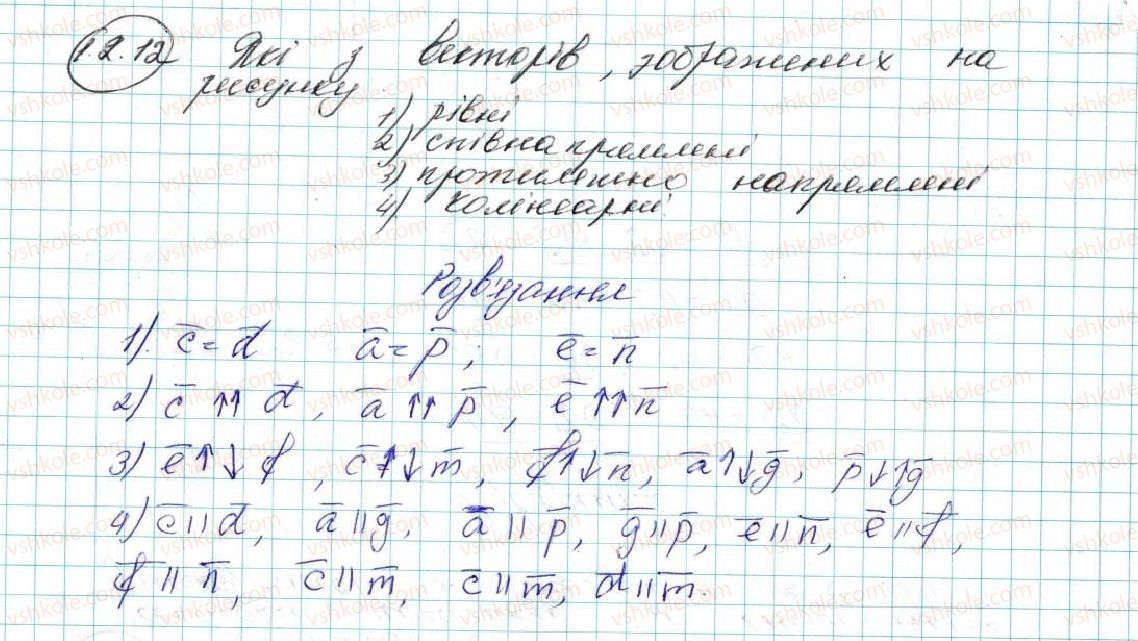 1.2.12 Які з векторів, зображених на
рисунку
1) рівні
2) співнапрямлені
3) протилежно напрямлені
4) колінеарні.
Розв'язання
1). c̅ = d̅ a̅ = p̅; e̅ = n̅
2) c̅ ↑↑ d̅, a̅ ↑↑ p̅, e̅ ↑↑ n̅
3) e̅ ↑↓ f̅, c̅ ↑↓ m̅, f̅ ↑↓ n̅, a̅ ↑↓ g̅, p̅ ↓↑ g̅
4) c̅ || d̅, a̅ || g̅, a̅ || p̅, g̅ || p̅, e̅ || n̅, e̅ || f̅,
f̅ || n̅, c̅ || m̅, c̅ || m̅, d̅ || m̅.
vshkole.com